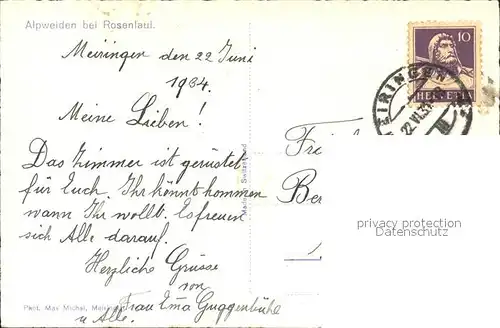 Alpweiden bei Rosenlaui.
Meiringen den 22 Juni
1934.
Meine Lieben!
Das Zimmer ist gerüstet
für Euch. Ihr könnt kommen
wann Ihr wollt. Es freuen
sich Alle darauf.
Herzliche Grüsse
von
Frau Ema Guggenbühl
u Alle.
Phot. Max Michel, Meiringen
Made in Switzerland
10
HELVETIA
EIRINGEN
22.VI.3
Frei
Ber
privacy protection
Datenschutz